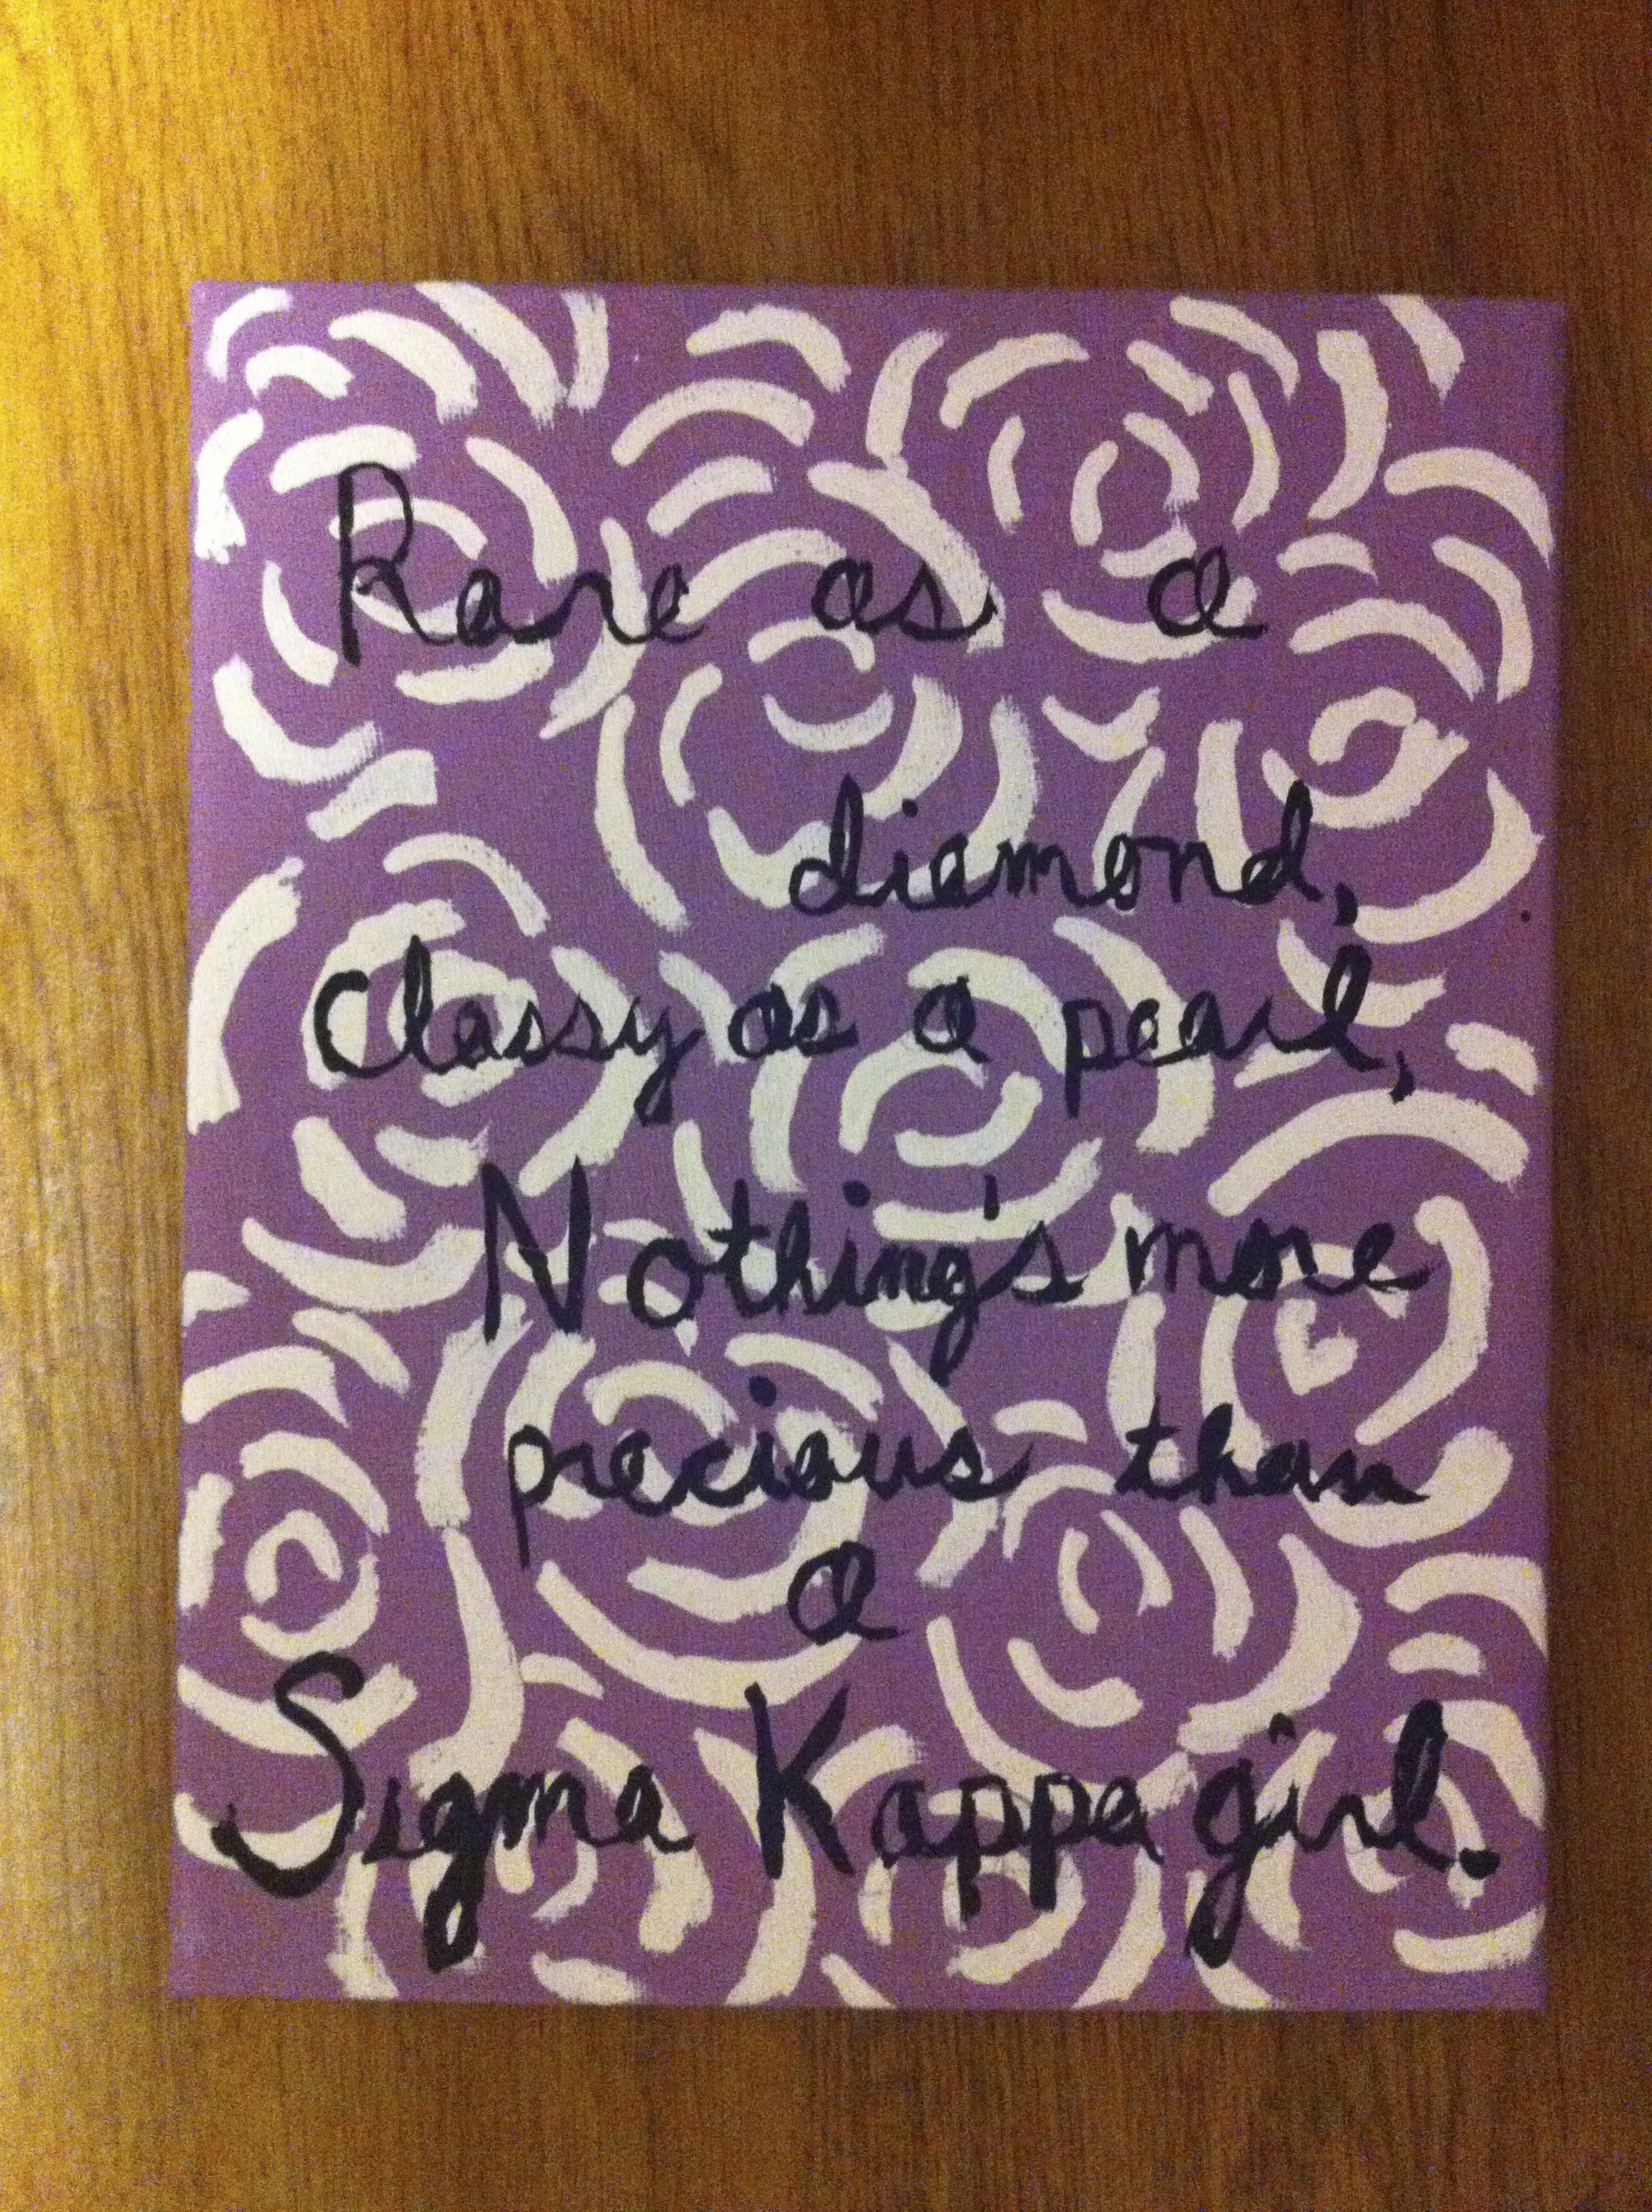 Rare as a
diamond,
Classy as a pearl,
Nothing's more
precious than
a
Sigma Kappa girl.